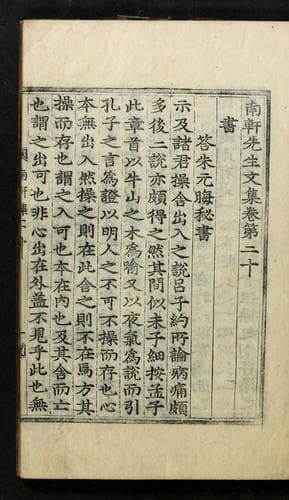 南軒先生文集卷第二十
書
答朱元晦秘書
示及諸君操舍出入之說呂子約所論病痛頗
多後二說亦頗得之然其間似未子細按孟子
此章首以牛山之木爲喻又以夜氣爲說而引
孔子之言爲證以明人之不可不操而存也心
本無出入然操之則在此舍之則不在焉方其
操而存也謂之入可也本在內也及其舍而亡
也謂之出可也非心出在外蓋不見乎此也無